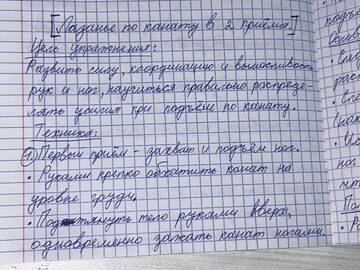 [Лазанье по канату в 2 приёма.]
Цель упражнения:
Развить силу, координацию и выносливость
рук и ног, научиться правильно распреде-
лять усилия при подъёме по канату.
Техника:
1) Первый приём - захват и подъём ног.
• Руками крепко обхватить канат на
уровне груди.
• Подтянуть тело руками вверх,
одновременно зажать канат ногами.
подъ
Осно
рас
ног